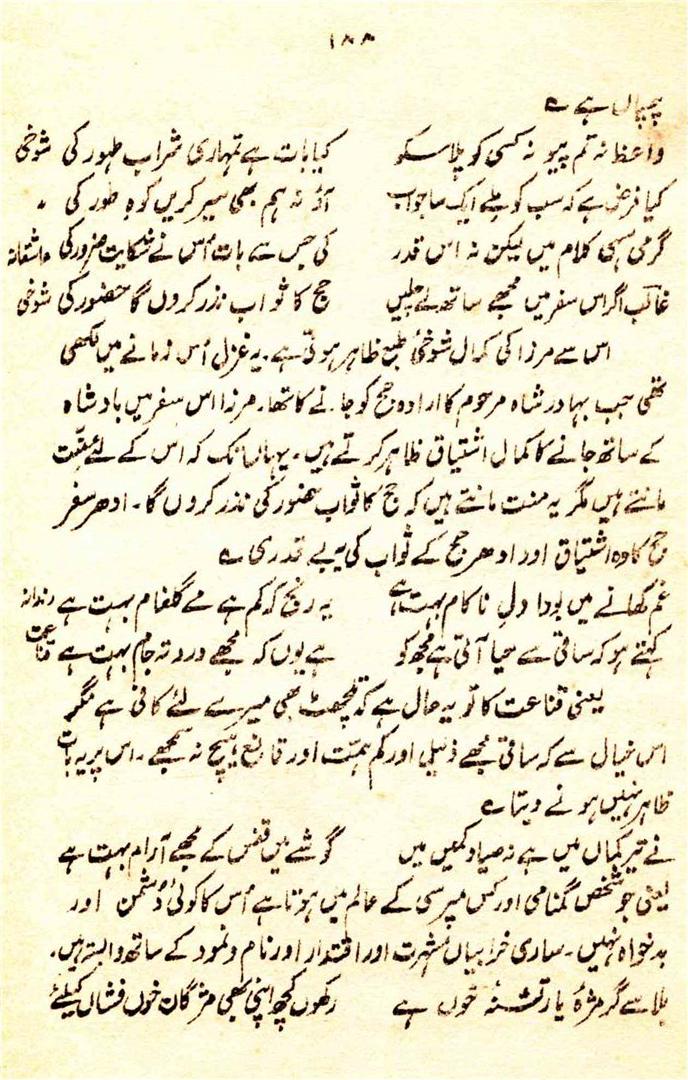 ۱۸۸
چسپاں ہے ؎
واعظ نہ تم پیو نہ کسی کو پلا سکو کیا بات ہے تمہاری شراب طہور کی شوخی
کیا فرض ہے کہ سب کو ملے ایک سا جواب آؤ نہ ہم بھی سیر کریں کوہِ طور کی 〃
گرمی سہی کلام میں لیکن نہ اس قدر کی جس سے بات اُس نے شکایت ضرور کی عاشقانہ
غالب اگر اس سفر میں مجھے ساتھ لے چلیں حج کا ثواب نذر کروں گا حضور کی شوخی
اس سے مرزا کی کمال شوخیٔ طبع ظاہر ہوتی ہے۔ یہ غزل اُس زمانے میں لکھی
تھی جب بہادر شاہ مرحوم کا ارادہ حج کو جانے کا تھا۔ مرزا اس سفر میں بادشاہ
کے ساتھ جانے کا کمال اشتیاق ظاہر کرتے ہیں۔ یہاں تک کہ اس کے لئے منّت
مانتے ہیں مگر یہ منت مانتے ہیں کہ حج کا ثواب حضور کی نذر کروں گا۔ ادھر سفر
حج کا وہ اشتیاق اور ادھر حج کے ثواب کی یہ بے قدری ؎
غم کھانے میں بودا دلِ ناکام بہت ہے یہ رنج کہ کم ہے مے گلفام بہت ہے رندانہ
کہتے ہو کہ ساقی سے حیا آتی ہے مجھ کو ہے یوں کہ مجھے دُردِ تہِ جام بہت ہے قناعت
یعنی قناعت کا تو یہ حال ہے کہ تلچھٹ بھی میرے لئے کافی ہے مگر
اس خیال سے کہ ساقی مجھے ذلیل اور کم ہمّت اور قانع بہیچ نہ سمجھے۔ اس پر یہ بات
ظاہر نہیں ہونے دیتا ؎
نے تیر کماں میں ہے نہ صیاد کمیں میں گوشے میں قفس کے مجھے آرام بہت ہے
یعنی جو شخص گمنامی اور کس مپرسی کے عالم میں ہوتا ہے اُس کا کوئی دُشمن اور
بدخواہ نہیں۔ ساری خرابیاں شہرت اور اقتدار اور نام و نمود کے ساتھ وابستہ ہیں۔
بلا سے گر مژۂ یار تشنۂ خوں ہے رکھوں کچھ اپنی بھی مژگانِ خوں فشاں کیلئے